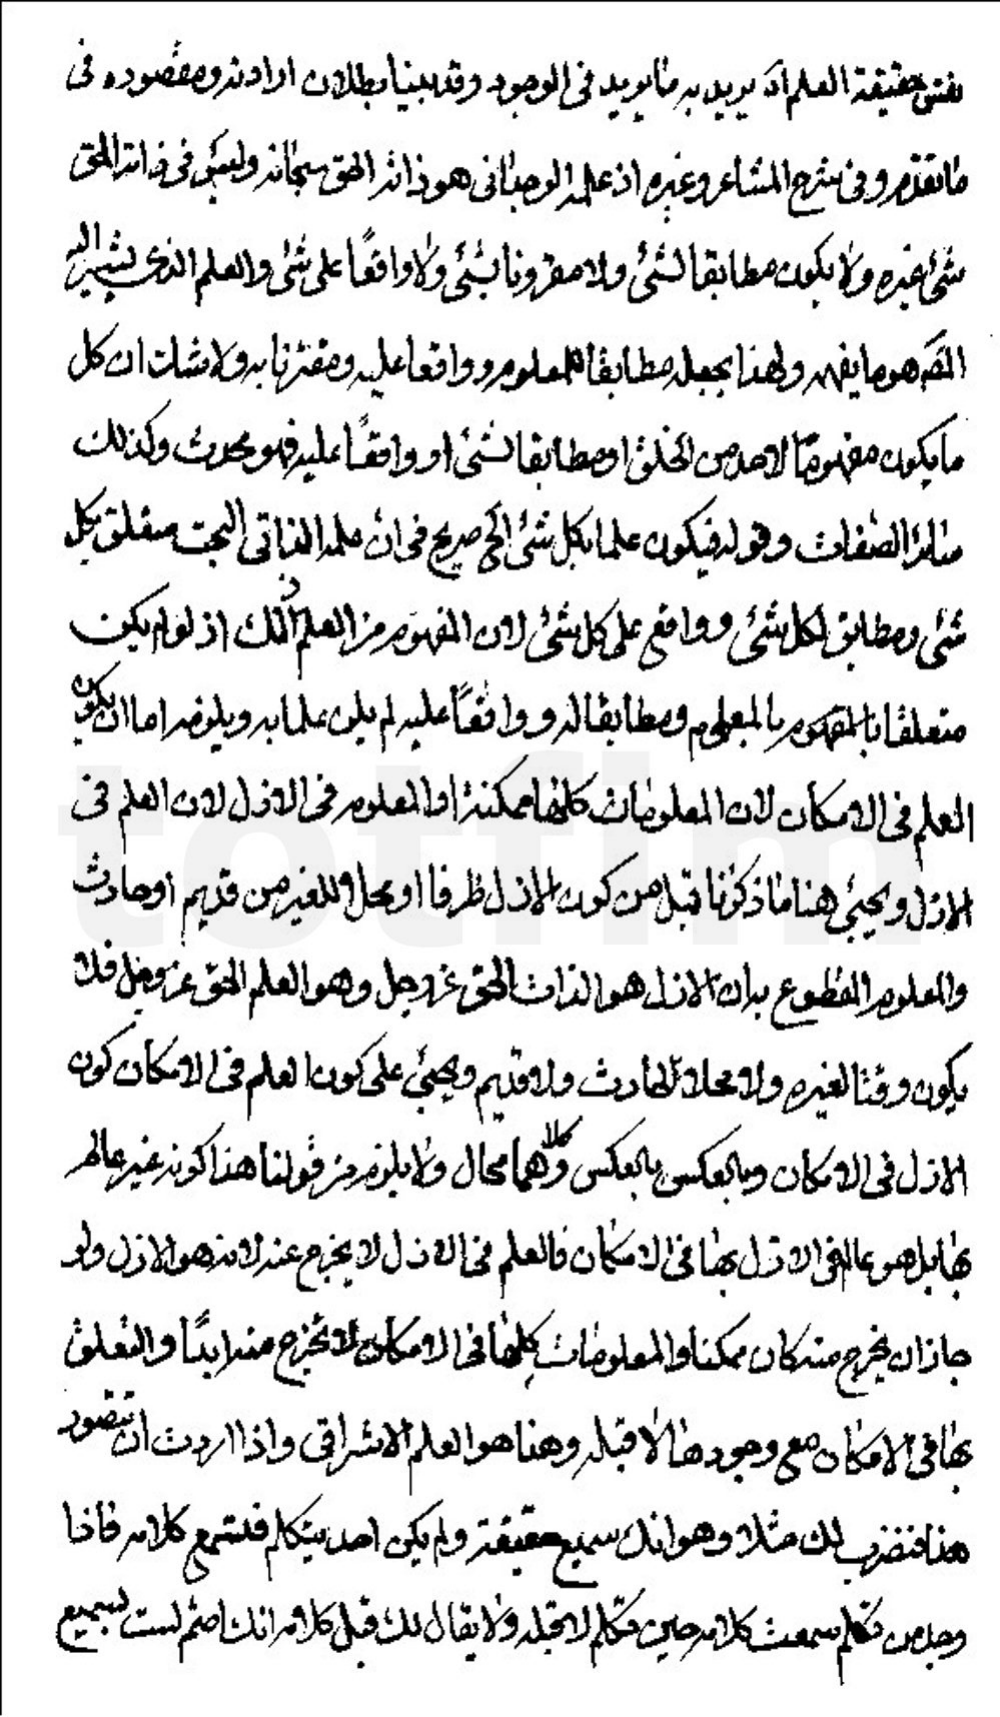 نفس حقيقة العلم اذ يريد به ما يريد فى الوجود وقد بينا بطلان ارادته ومقصوده فى
ما تقدم وفى شرح المشاعر وغيره اذ علمه الوجدانى هو ذاته الحق سبحانه وليس فى ذاته الحق
شئ غيره ولا يكون مطابقا لشئ ولا مقرونا بشئ ولا واقعًا على شئ والعلم الذى يشير اليه
المص هو ما يفهم ولهذا يجعله مطابقا للمعلوم وواقعا عليه ومقترنا به ولا شك ان كل
ما يكون مفهومًا لاحد من الخلق او مطابقا لشئ او واقعًا عليه فهو محدث وكذلك
سائر الصفات وقوله فيكون علما بكل شئ الخ صريح فى ان علمه الذاتى البحت متعلق بكل
شئ ومطابق لكل شئ وواقع على كل شئ لان المفهوم من العلم ذلك اذ لو لم يكن
متعلقا بالمعلوم ومطابقا له وواقعًا عليه لم يكن علما به ويلزمه اما ان يكون
العلم فى الامكان لان المعلومات كلها ممكنة او المعلوم فى الازل لان العلم فى
الازل ويجئ هنا ما ذكرنا قبل من كون الازل ظرفا او محلا للغير من قديم او حادث
والمعلوم المقطوع به ان الازل هو الذات الحق عز وجل وهو العلم الحق عز وجل فلا
يكون وقتا لغيره ولا محلا لحادث ولا قديم ويجئ على كون العلم فى الامكان كون
الازل فى الامكان وبالعكس بالعكس وكلاهما محال ولا يلزم من قولنا هذا كونه غير عالم
بها بل هو عالم فى الازل بها فى الامكان فالعلم فى الازل لا يخرج عنه لانه هو الازل ولو
جاز ان يخرج منه كان ممكنا والمعلومات كلها فى الامكان لا تخرج منه ابدًا والتعلق
بها فى الامكان مع وجودها لا قبله وهنا هو العلم الاشراقى واذا اردت ان تتصور
هذا فنضرب لك مثلا وهو انك سميع حقيقة ولم يكن احد يتكلم فتسمع كلامه فاذا
وجد من تكلم سمعت كلامه حين تكلم لا قبله ولا يقال لك قبل كلامه انك اصم لست بسميع